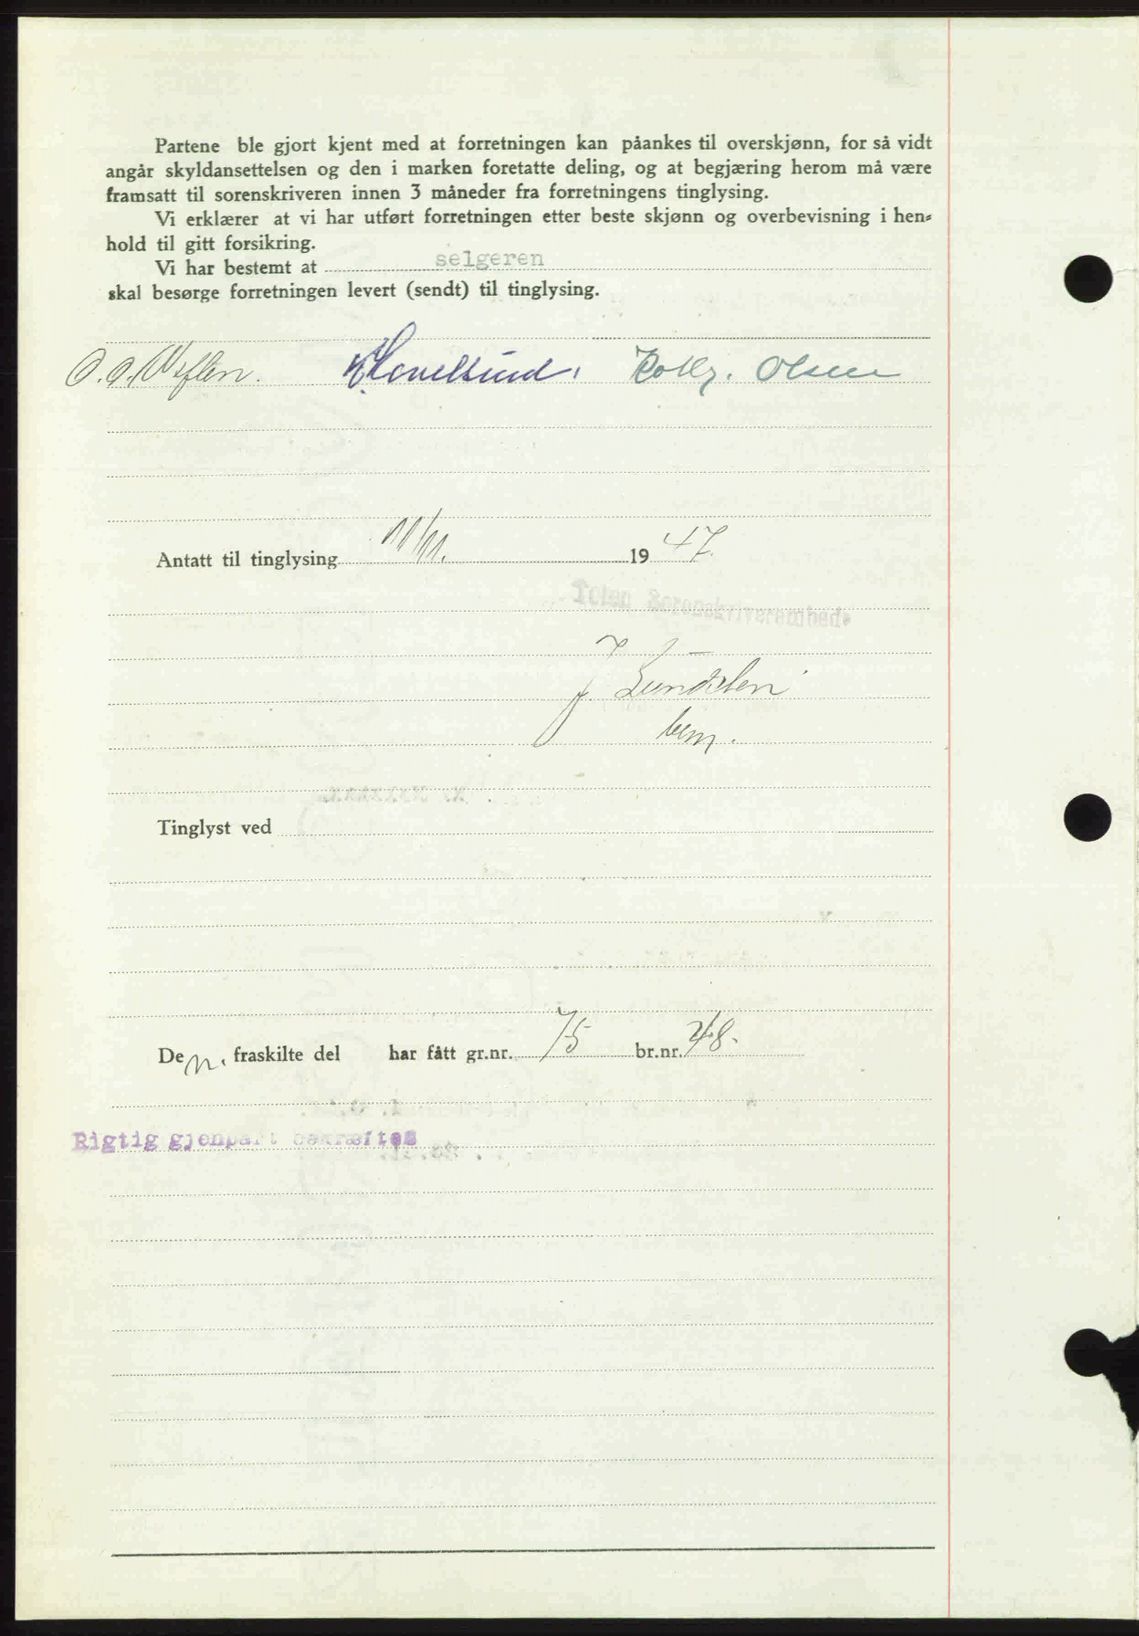 Partene ble gjort kjent med at forretningen kan påankes til overskjønn, for så vidt
angår skyldansettelsen og den i marken foretatte deling, og at begjæring herom må være
framsatt til sorenskriveren innen 3 måneder fra forretningens tinglysing.
Vi erklærer at vi har utført forretningen etter beste skjønn og overbevisning i hen-
hold til gitt forsikring.
Vi har bestemt at selgeren
skal besørge forretningen levert (sendt) til tinglysing.
Olsen
Antatt til tinglysing 11/11. 1947.
Toten Sorenskriverembede
Tinglyst ved
Den. fraskilte del har fått gr.nr. 75 br.nr. 48.
Rigtig gjenpart bekræftes